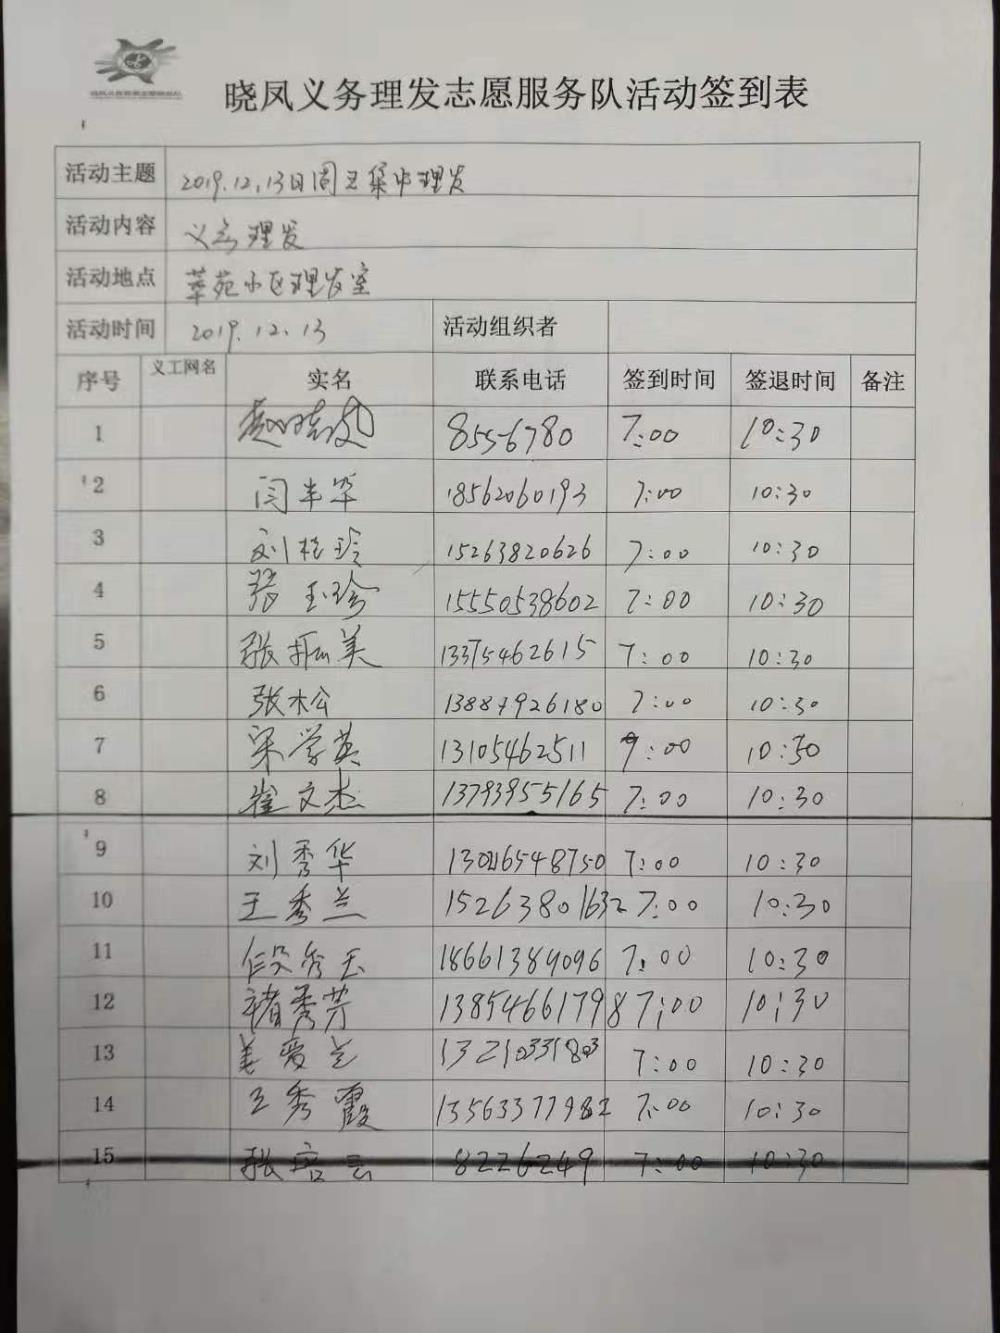 晓凤义务理发志愿服务队活动签到表
活动主题 2019.12.13日周五集中理发
活动内容 义务理发
活动地点 莘苑小区理发室
活动时间 2019.12.13 活动组织者
序号 义工网名 实名 联系电话 签到时间 签退时间 备注
1 赵晓凤 8556780 7:00 10:30
2 闫丰华 18562060193 7:00 10:30
3 刘桂玲 15263820626 7:00 10:30
4 张玉珍 15550538602 7:00 10:30
5 张振美 13375462615 7:00 10:30
6 张木公 13887926180 7:00 10:30
7 宋学英 13105462511 7:00 10:30
8 崔文杰 13793955165 7:00 10:30
9 刘秀华 7:00 10:30
10 王秀兰 15263801632 7:00 10:30
11 段秀玉 18661384096 7:00 10:30
12 褚秀芳 13854661798 7:00 10:30
13 姜爱兰 7:00 10:30
14 王秀霞 13563377982 7:00 10:30
15 张 云 8226249 7:00 10:30